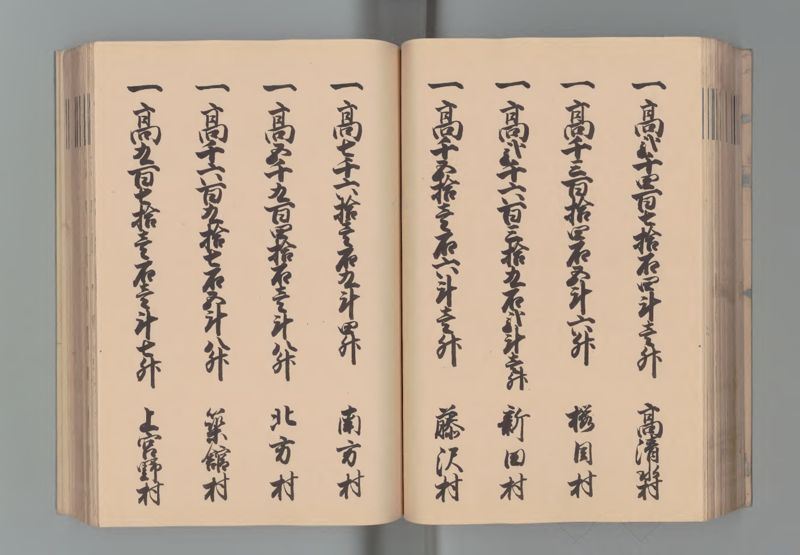 一高弐千四百七拾石四斗壱升 高清水村
一高千三百拾四石五斗六升 桜目村
一高弐千六百三拾九石弐斗壱升 新田村
一高千五拾壱石六斗壱升 藤沢村
一高七千六拾壱石九斗四升 南方村
一高五千九百四拾石壱斗八升 北方村
一高千六百九拾七石五斗八升 築舘村
一高九百七拾壱石壱斗七升 上宮野村